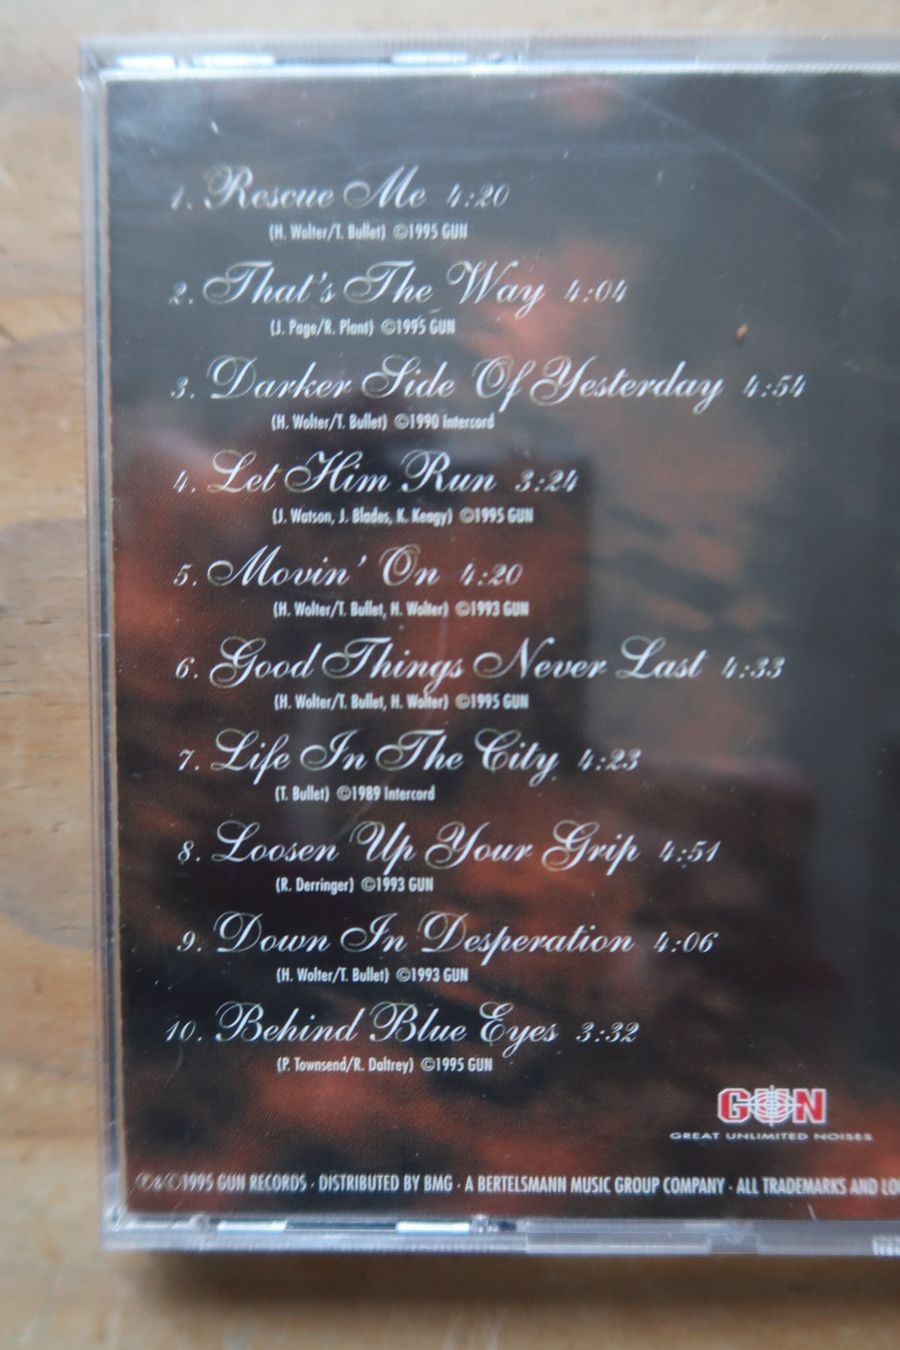 1. Rescue Me 4:20
(H. Wolter/T. Bullet) ©1995 GUN
2. That's The Way 4:04
(J. Page/R. Plant) ©1995 GUN
3. Darker Side Of Yesterday 4:54
(H. Wolter/T. Bullet) ©1990 Intercord
4. Let Him Run 3:24
(J. Watson, J. Blades, K. Keagy) ©1995 GUN
5. Movin' On 4:20
(H. Wolter/T. Bullet, H. Wolter) ©1993 GUN
6. Good Things Never Last 4:33
(H. Wolter/T. Bullet, H. Wolter) ©1995 GUN
7. Life In The City 4:23
(T. Bullet) ©1989 Intercord
8. Loosen Up Your Grip 4:51
(R. Derringer) ©1993 GUN
9. Down In Desperation 4:06
(H. Wolter/T. Bullet) ©1993 GUN
10. Behind Blue Eyes 3:32
(P. Townsend/R. Daltrey) ©1995 GUN
GUN
GREAT UNLIMITED NOISES
℗&©1995 GUN RECORDS · DISTRIBUTED BY BMG · A BERTELSMANN MUSIC GROUP COMPANY · ALL TRADEMARKS AND